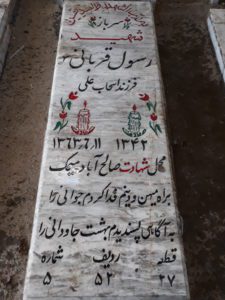 سرباز
شهید
رسول قربانی
فرزند اسحاب علی
۱۳۴۲ ۱۳۶۳٫۶٫۱۱
محل شهادت صالح آباد
براه میهن و دینم فدا کردم جوانی را
به آگاهی پسندیدم بهشت جاودانی را
قطعه ردیف شماره
۲۷ ۵۲ ۵